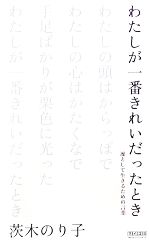 わたしが一番きれいだったとき
凛として生きるための言葉
わたしの頭はからっぽで
わたしの心はかたくなで
手足ばかりが栗色に光った
わたしが一番きれいだったとき
茨木のり子